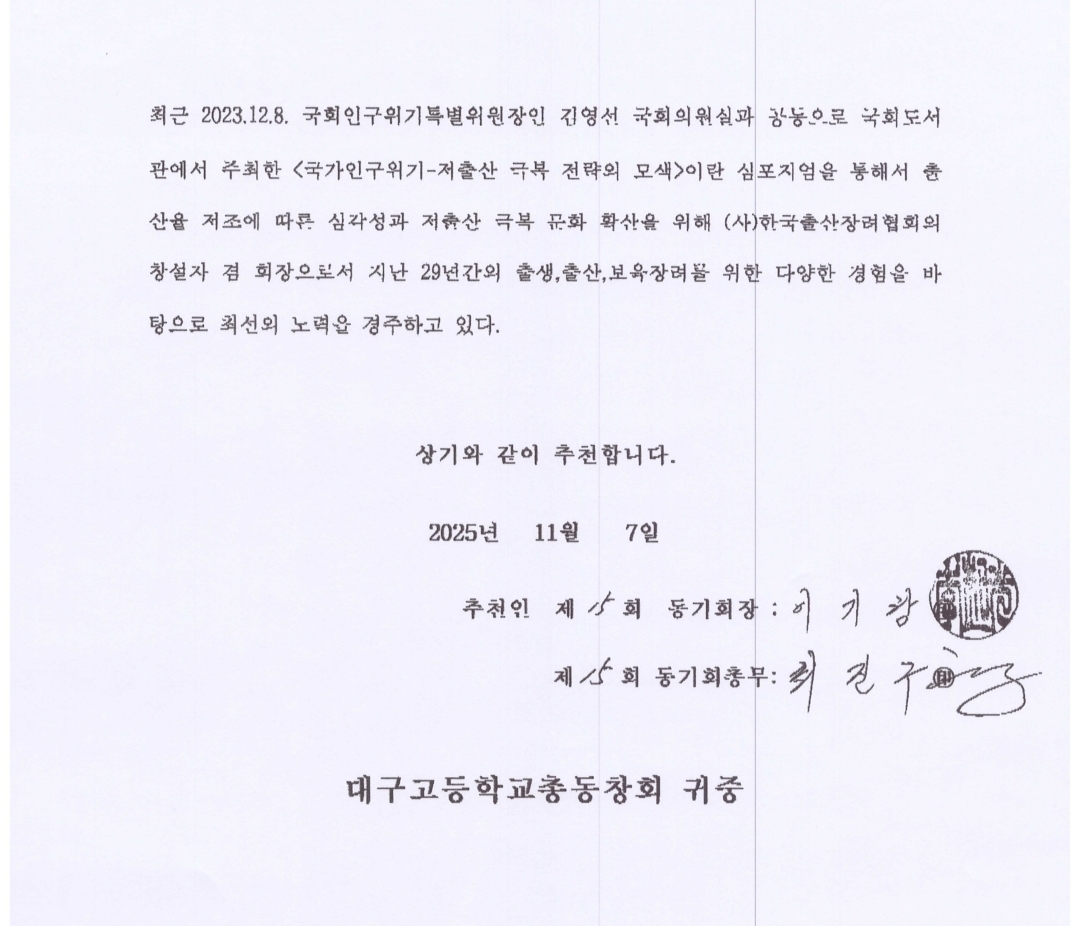 최근 2023.12.8. 국회인구위기특별위원장인 김영선 국회의원실과 공동으로 국회도서
관에서 주최한 <국가인구위기-저출산 극복 전략의 모색>이란 심포지엄을 통해서 출
산율 저조에 따른 심각성과 저출산 극복 문화 확산을 위해 (사)한국출산장려협회의
창설자 겸 회장으로서 지난 29년간의 출생,출산,보육장려를 위한 다양한 경험을 바
탕으로 최선의 노력을 경주하고 있다.
상기와 같이 추천합니다.
2025년 11월 7일
추천인 제 15 회 동기회장 : 이 기
제 15 회 동기회총무: 최 진 구
대구고등학교총동창회 귀중